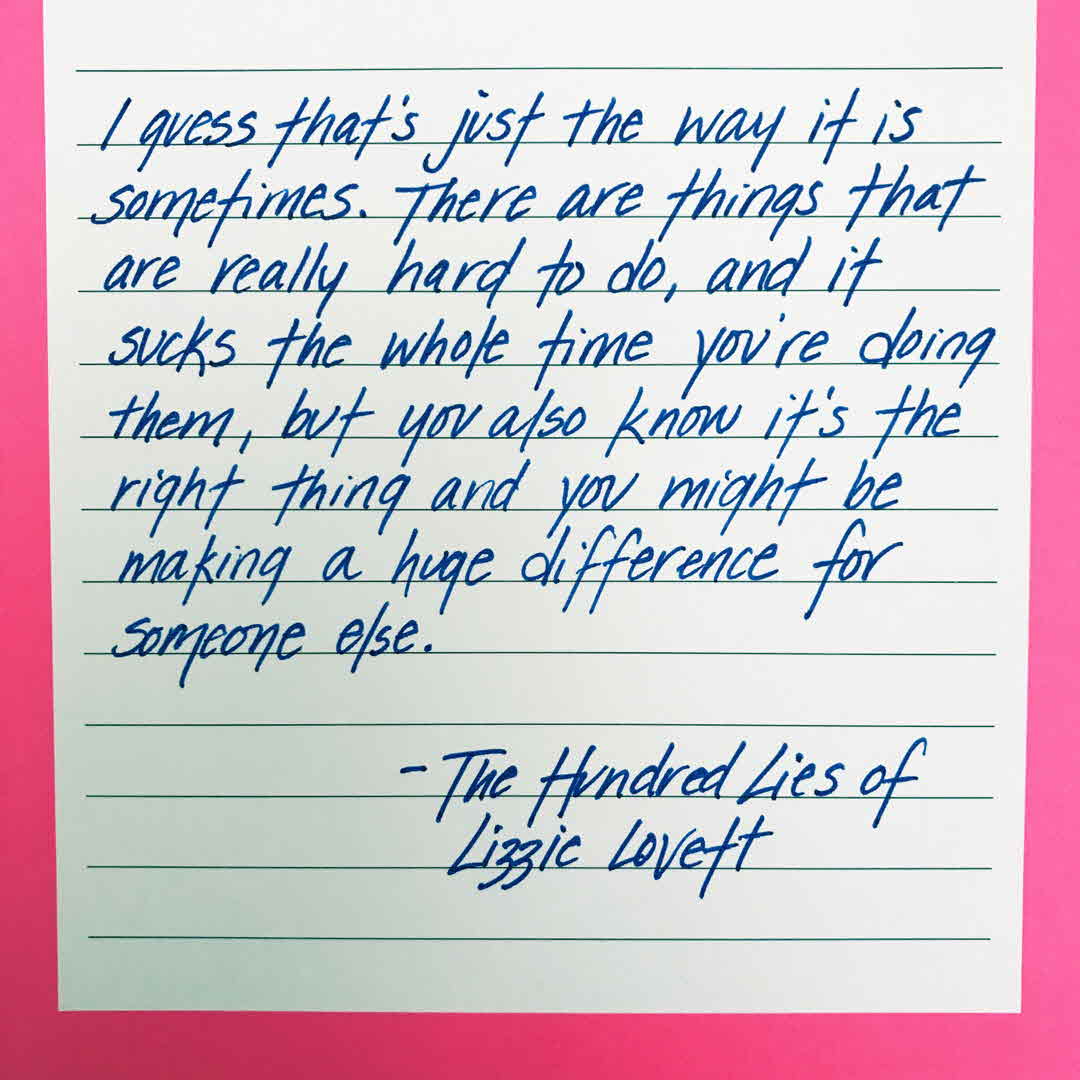 I guess that's just the way it is
sometimes. There are things that
are really hard to do, and it
sucks the whole time you're doing
them, but you also know it's the
right thing and you might be
making a huge difference for
someone else.
- The Hundred Lies of
Lizzie Lovett